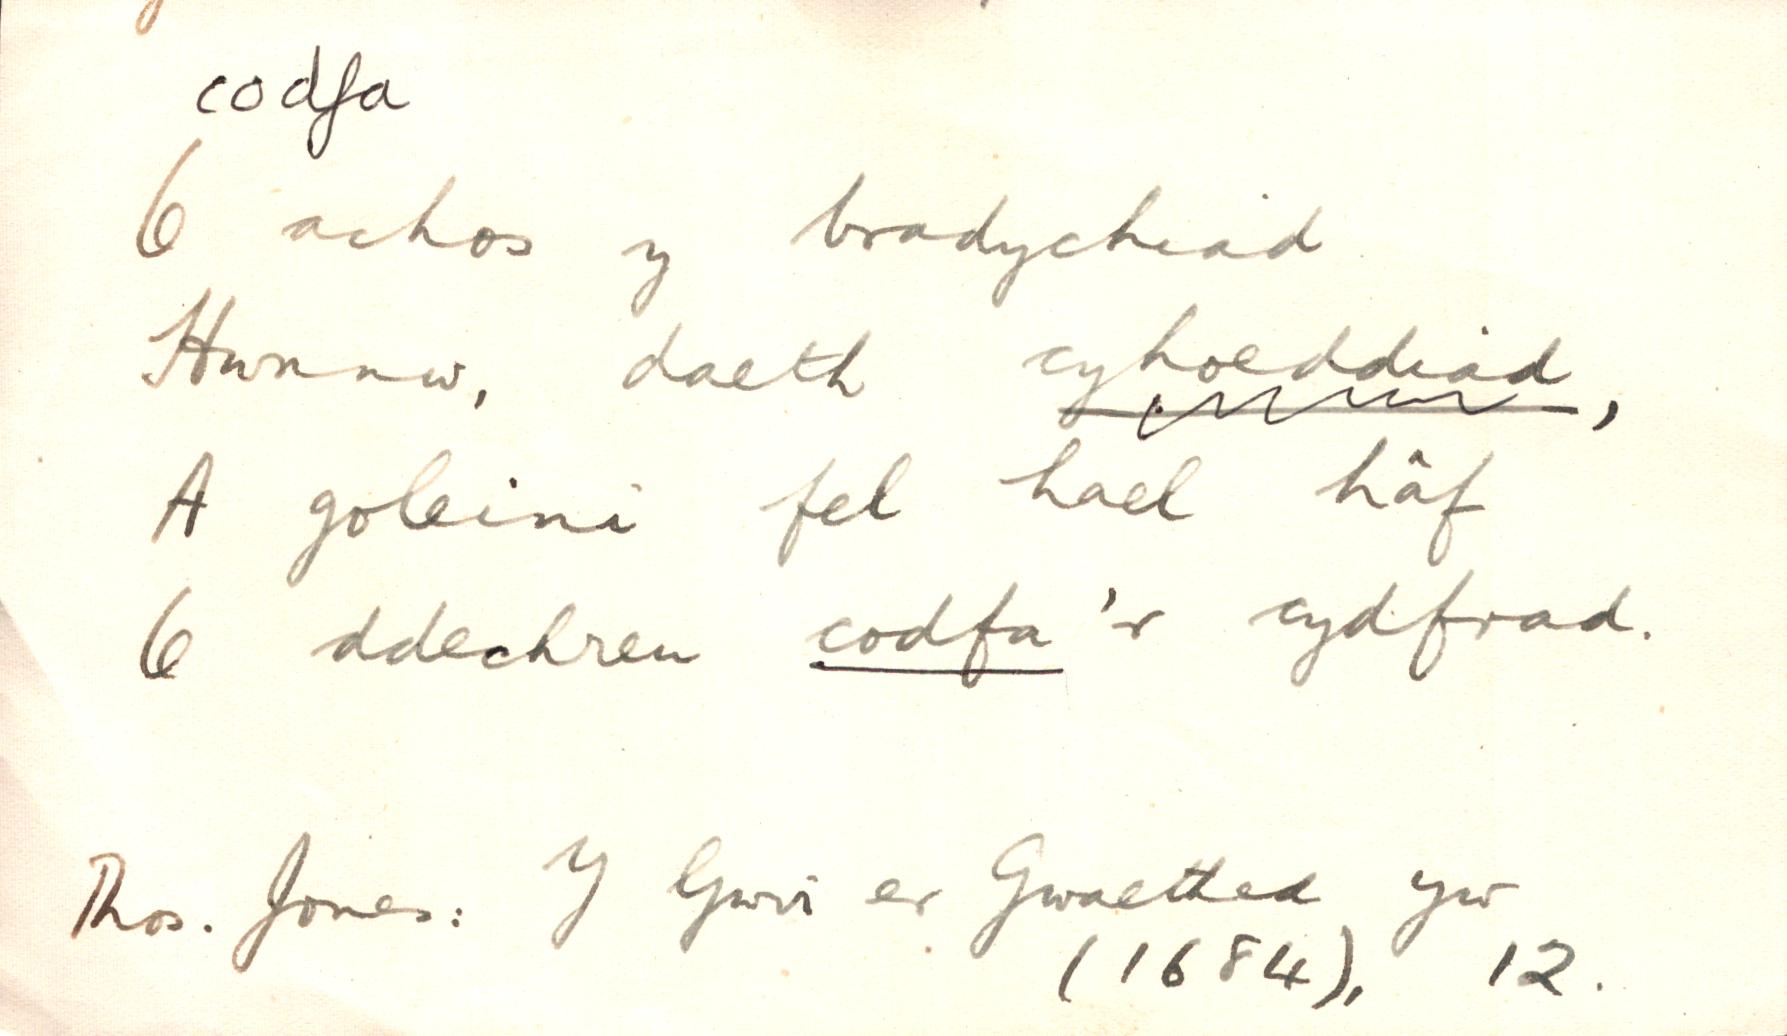 codfa
O achos y bradychiad
Hwnnw, daeth cyhoeddiad,
A goleini fel hael hâf
O ddechreu codfa'r cydfrad.
Thos. Jones: Y Gwir er Gwaethed yw
(1684), 12.